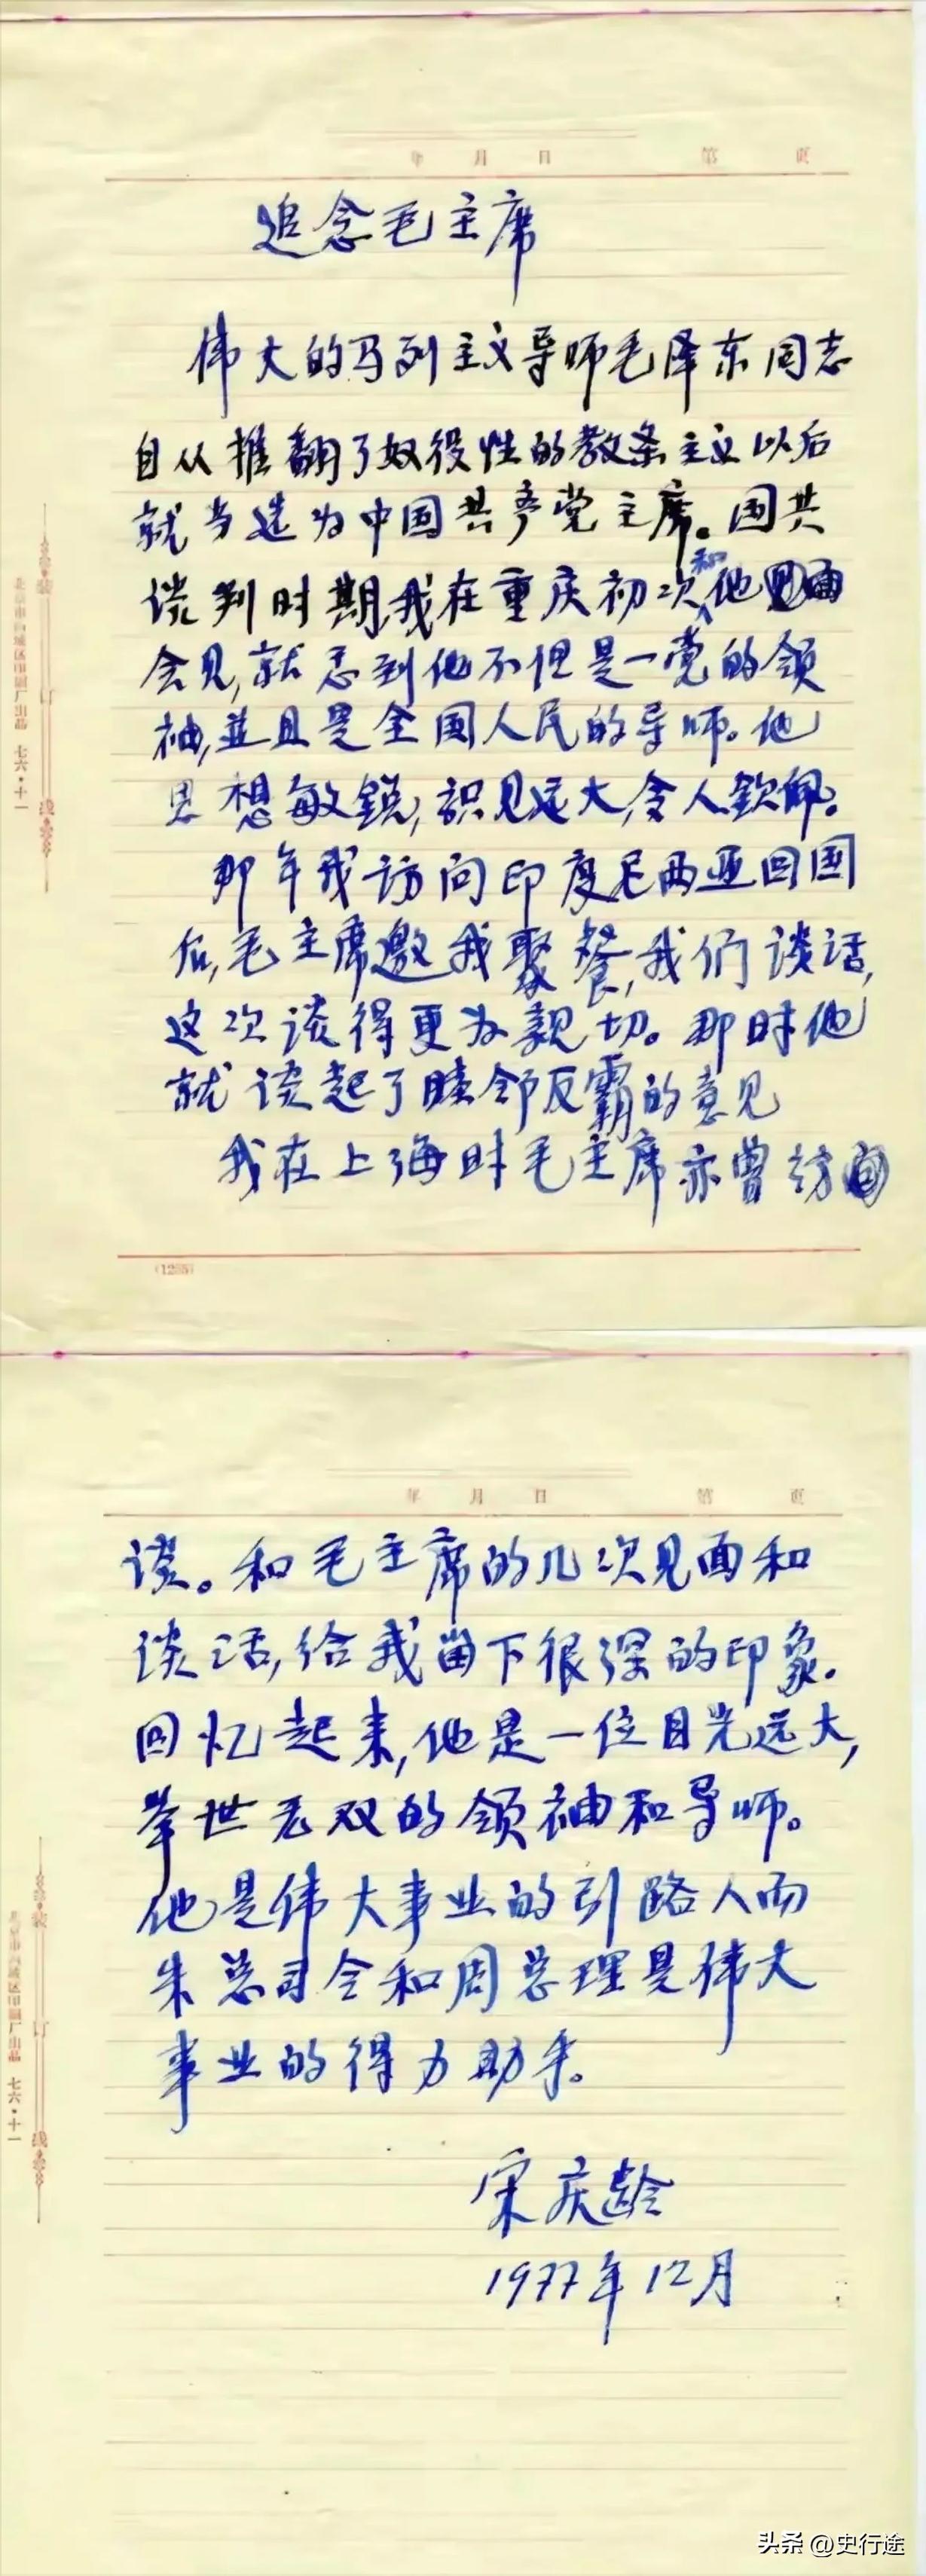 年 月 日 第 页
追念毛主席
伟大的马列主义导师毛泽东同志
自从推翻了奴役性的教条主义以后
就当选为中国共产党主席。国共
谈判时期,我在重庆初次和他
会见,就感到他不但是一党的领
袖,並且是全国人民的导师。他
思想敏锐,识见远大,令人钦佩。
那年我访问印度尼西亚回国
后,毛主席邀我聚餐,我们谈话,
这次谈得更为亲切。那时他
就谈起了睦邻反霸的意见
我在上海时毛主席亦曾访
(1265)
装
订
线
北京市西城区印刷厂出品 七六·十一
年 月 日 第 页
谈。和毛主席的几次见面和
谈话,给我留下很深的印象。
回忆起来,他是一位目光远大,
举世无双的领袖和导师。
他是伟大事业的引路人而
朱总司令和周总理是伟大
事业的得力助手。
宋庆龄
1977年12月
装
订
线
北京市西城区印刷厂出品 七六·十一
头条 @史行途